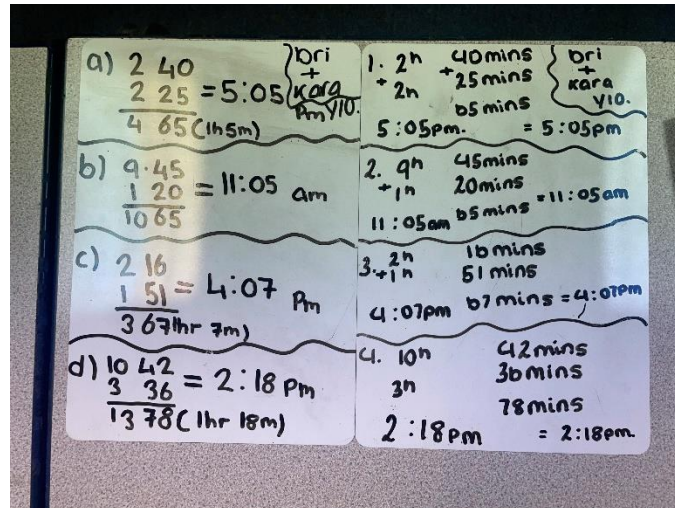 a) 2 40
2 25 = 5:05 pm
4 65 (1h 5m)
bri
+
kara
y10.
b) 9.45
1 20 = 11:05 am
10 65
c) 2 16
1 51 = 4:07 pm
3 67 1hr 7m)
d) 10 42
3 36 = 2:18 pm
13 78 (1hr 18m)
1. 2h 40mins
+ 2h + 25mins
65mins
5:05pm. = 5:05pm
bri
+
kara
y10.
2. 9h 45mins
+ 1h 20mins
11:05am 65mins = 11:05am
3. 2h 16mins
+ 1h 51 mins
4:07pm 67mins = 4:07pm
4. 10h 42mins
3h 36mins
78mins
2:18pm = 2:18pm.